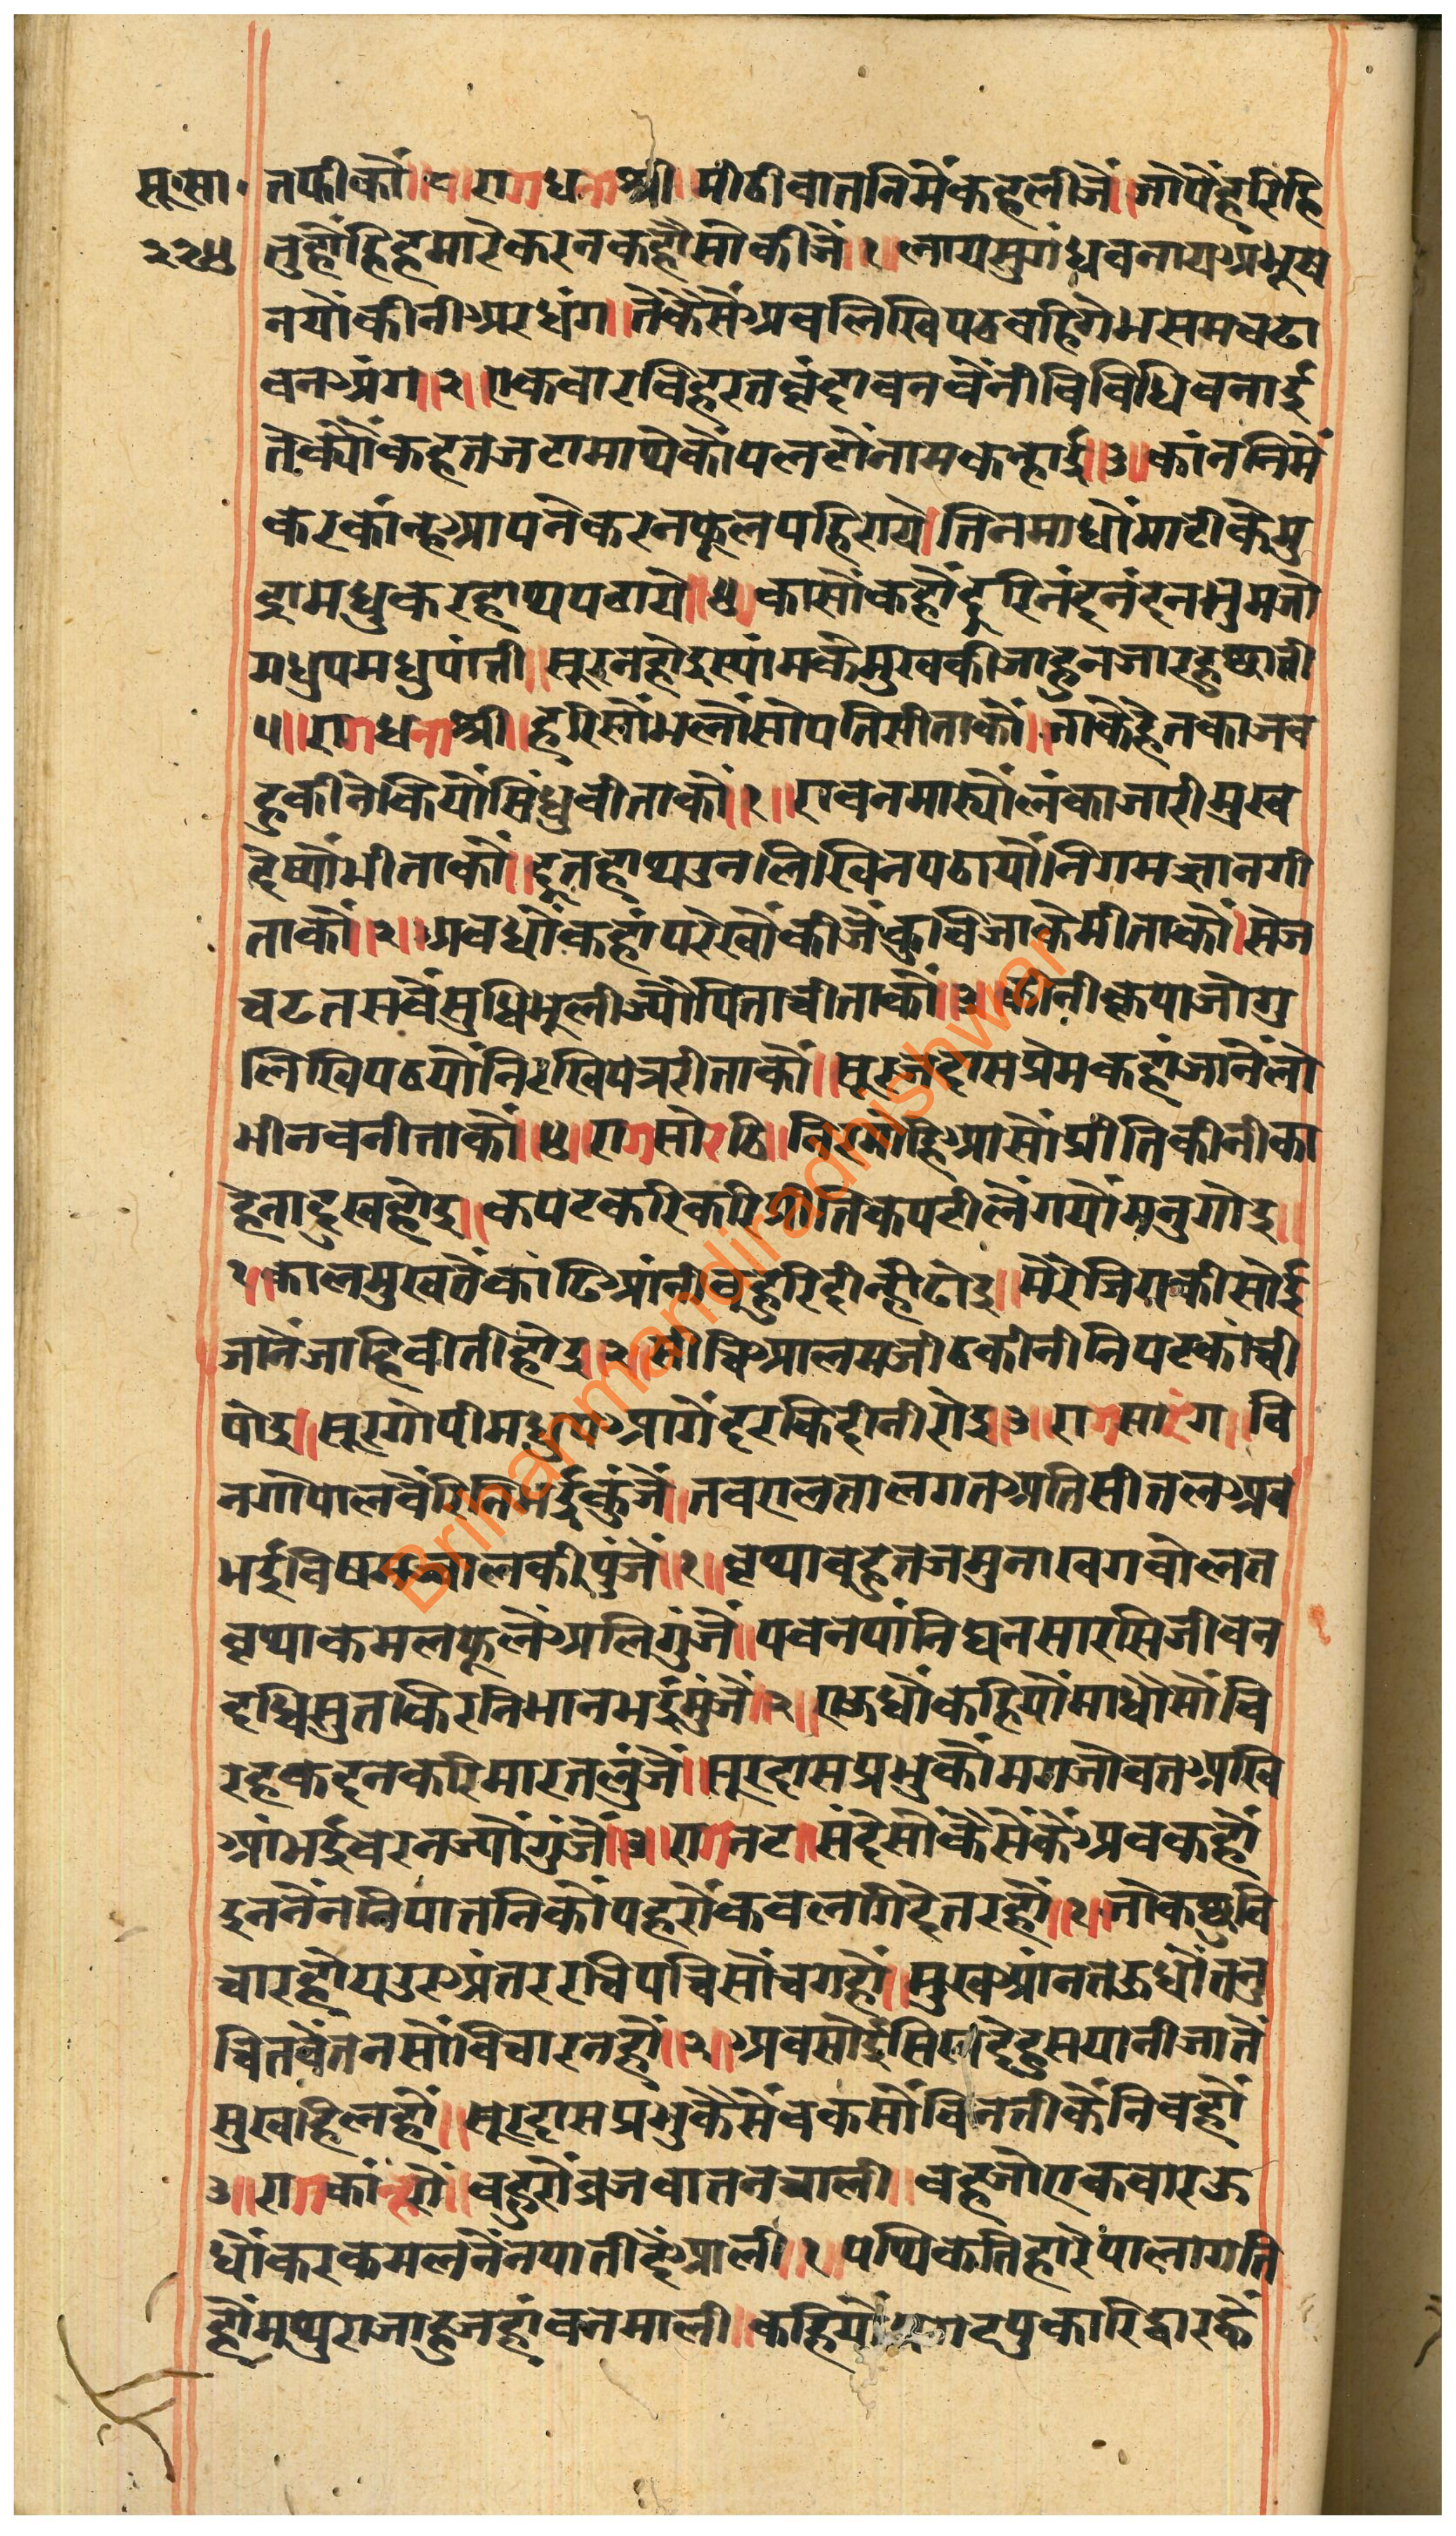 सू.सा. तफीकौं ॥८॥ रागधनाश्री ॥ मीठीबातनिमैंकहलीजैं ॥ जोपैंहरिहि
२२५ तुहौंहिहमारेकरनकहौसोकीजैं ॥१॥ लायसुगंधबनायअभूष
नयौंकीनीअरधंग ॥ तेकैसैंअबलिखिपठवहिगेभसमचढा
वनअंग ॥२॥ एकबारविहरतवृंदावनबैंनीबिबिधिबनाई
तेक्यौंकहतजटामाथेकौंपलटौंनामकन्हाई ॥३॥ कांननिमैं
करकांन्हआपनेकरनफूलपहिराये ॥ तिनमाधौंमाटीकेमु
द्रामधुकरहाथपठाये ॥४॥ कासौंकहौंदूरिनंदनंदनतुमजो
मधुपमधुपांती ॥ सूरनहोइस्यांमकेमुखकीजाहुनजारहुछाती
५॥ रागधनाश्री ॥ हरिसौंभलौंसोपतिसीताकौं ॥ जाकेहेतकाजब
हुकीनेकियौंसिंधुबीताकौं ॥१॥ रावनमार्यौलंकाजारीमुख
देष्यौंभीताकौं ॥ दूतहाथउनलिखिनपठायौंनिगमज्ञानगी
ताकौं ॥२॥ अबधौंकहांपरेखौंकीजैंकुबिजाकेमीताकौं ॥ सेज
चढतसबैंसुधिभूलीज्यौंपिताचीताकौं ॥३॥ कीनीकृपाजोगु
लिखिपठयौंनिरखिपत्ररीताकौं ॥ सूरजदासप्रेमकहांजानैंलो
भीनवनीताकौं ॥४॥ रागसोरठि ॥ निरमोहिआसौंप्रीतिकीनीका
हेनादुखहोइ ॥ कपटकरिकरिप्रीतिकपटीलैंगयौंमनुगोइ ॥
१॥ कालमुखतेंकाढिआंनीबहुरिदीन्हीढोइ ॥ मेरेजियकीसोई
जानैंजाहिबीतीहोइ ॥२॥ सोचिआलमजीठकीनीनिपटकाची
पोइ ॥ सूरगोपीमधुपआगेंदरकिदीनीरोइ ॥३॥ रागसारंग ॥ बि
नगोपालबैंरिनिभईकुंजैं ॥ तबएलतालगतअतिसीतलअब
भईबिषमज्वालकीपुंजैं ॥१॥ वृथाबहतजमुनाखगबोलत
वृथाकमलफूलैंअलिगुंजैं ॥ पवनपांनिघनसारसिजीवन
दधिसुतकिरनिभानभईमुंजैं ॥२॥ एऊधौंकहियौंमाधौसौंबि
रहकदनकरिमारतलुंजैं ॥ सूरदासप्रभुकौंमगजोवतअखि
आंभईबरनज्यौंगुंजैं ॥३॥ रागनट ॥ संदेसौंकैसैंकैंअबकहौं
इननैंननिपातनिकौंपहरौंकबलगिदेतरहौं ॥१॥ जोकछुबि
चारहोयउरअंतररचिपचिसोचगहौं ॥ मुखआंनतऊधौंतनु
चितवैंतनसौंविचारनहौं ॥२॥ अबसोईसिखदेहुसयानीजातें
सुखहिलहौं ॥ सूरदासप्रभुकेसेवकसौंबिनतीकैनिबहौं
३॥ रागकांन्हरौं ॥ बहुरोंब्रजबातनचाली ॥ वहजोएकबारऊ
धौंकरकमलनैंनपातीदैंआली ॥१॥ पथिकतिहारेपालागति
हौंमथुराजाहुजहांबनमाली ॥ कहियौं पुकारिद्वारह्वैं